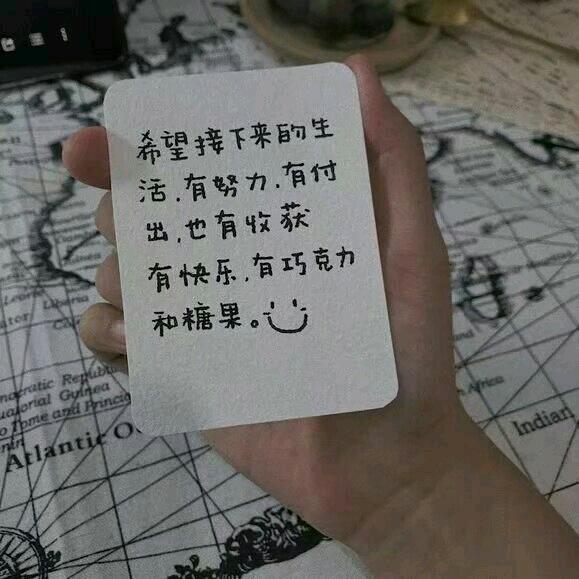 希望接下来的生
活,有努力,有付
出,也有收获
有快乐,有巧克力
和糖果。
Liberia
ator
Democratic Republic
Equatorial Guinea
Tome and Principe
Atlantic O
Africa
Indian